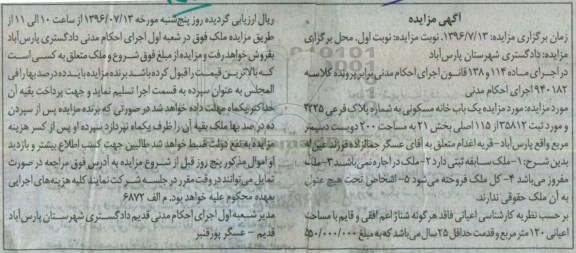 آگهی مزایده
زمان برگزاری مزایده: ۱۳۹۶/۷/۱۳. نوبت مزایده: نوبت اول. محل برگزاری
مزایده: دادگستری شهرستان پارس‌آباد
در اجرای ماده ۱۱۴ و ۱۳۸ قانون اجرای احکام مدنی برابر پرونده کلاسه
۹۴۰۱۸۲ اجرای احکام مدنی
مورد مزایده: مورد مزایده یک باب خانه مسکونی به شماره پلاک فرعی ۳۲۲۵
و مورد ثبت ۳۵۸۱۲ از ۱۱۵ اصلی بخش ۲۱ به مساحت ۲۰۰ دویست
مربع واقع پارس‌آباد- قریه اغدام متعلق به آقای عسگر جمعازاده فرزند
بدین شرح: ۱- ملک سابقه ثبتی دارد ۲- ملک در اجاره نمی‌باشد ۳- ملک
مفروز می‌باشد ۴- کل ملک فروخته می‌شود ۵- اشخاص تحت هیچ عنوان
به آن ملک حقوقی ندارند.
بر حسب نظریه کارشناسی اعیانی فاقد هر گونه شناژ اعم افقی و قایم با مساحت
اعیانی ۱۲۰ متر مربع و قدمت حداقل ۲۵ سال می‌باشد که به مبلغ ۵۵۰/۰۰۰/۰۰۰
ریال ارزیابی گردیده روز پنج‌شنبه مورخه ۱۳۹۶/۰۷/۱۳ از ساعت ۱۰ الی ۱۱ از
طریق مزایده ملک فوق در شعبه اول اجرای احکام مدنی دادگستری پارس‌آباد
بفروش خواهد رفت و مزایده از مبلغ فوق شروع و ملک متعلق به کسی است
که بالاترین قیمت را قبول کرده باشد. برنده مزایده باید ده درصد بها را فی
المجلس به عنوان سپرده به قسمت اجرا تسلیم نماید و جهت پرداخت بقیه آن
حداکثر یکماه مهلت داده خواهد شد. در صورتی که برنده مزایده پس از سپردن
ده درصد بها ملک بقیه آن را ظرف یکماه نپردازد سپرده او پس از کسر هزینه
مزایده به نفع دولت ضبط خواهد شد. طالبین جهت کسب اطلاع بیشتر و بازدید
اموال مذکور پنج روز قبل از شروع مزایده به آدرس فوق مراجعه در صورت
تمایل می‌توانند در وقت مقرر در جلسه شرکت نمایند کلیه هزینه‌های اجرایی
بعهده محکوم علیه خواهد بود. م الف ۶۸۷۲
مدیر شعبه اول اجرای احکام مدنی قدیم دادگستری شهرستان پارس‌آباد
قدیم - عسگر پورقنبر